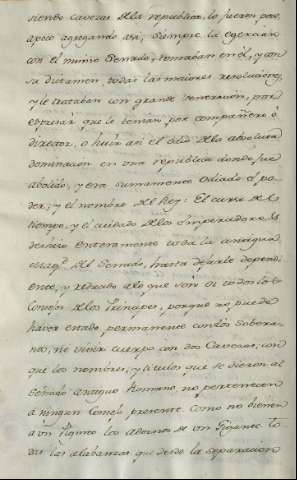 siendo cavezas de la republica, lo fueron poco
apoco agregando asi, siempre la egercian
con el mismo Senado, tomaban en él, y con
su dictamen todas las maiores resoluciones,
y le trataban con grande veneracion, por
expresar que le tenian por compañero ó
director, o huir asi el odio de la absoluta
dominacion en una republica donde fue
abolido, y era sumamente odiado el po-
der, y el nombre de Rey: El curso de el
tiempo, y el cuidado de los Emperadores
deshizo enteramente toda la antigua
mag.d del Senado, hasta dejarle dependi-
ente, y reducido alo que son oi todos los
Consejos de los Principes, porque no puede
haver estado permanente con dos Sobera-
nos, ni vivir cuerpo con dos Cavezas, con
que los nombres, y titulos que se dieron al
Senado antiguo Romano, no pertenecen
á ningun Consejo presente como no vienen
a un Pigmeo los adornos de un Gigante to-
das las alabanzas que desde la separacion